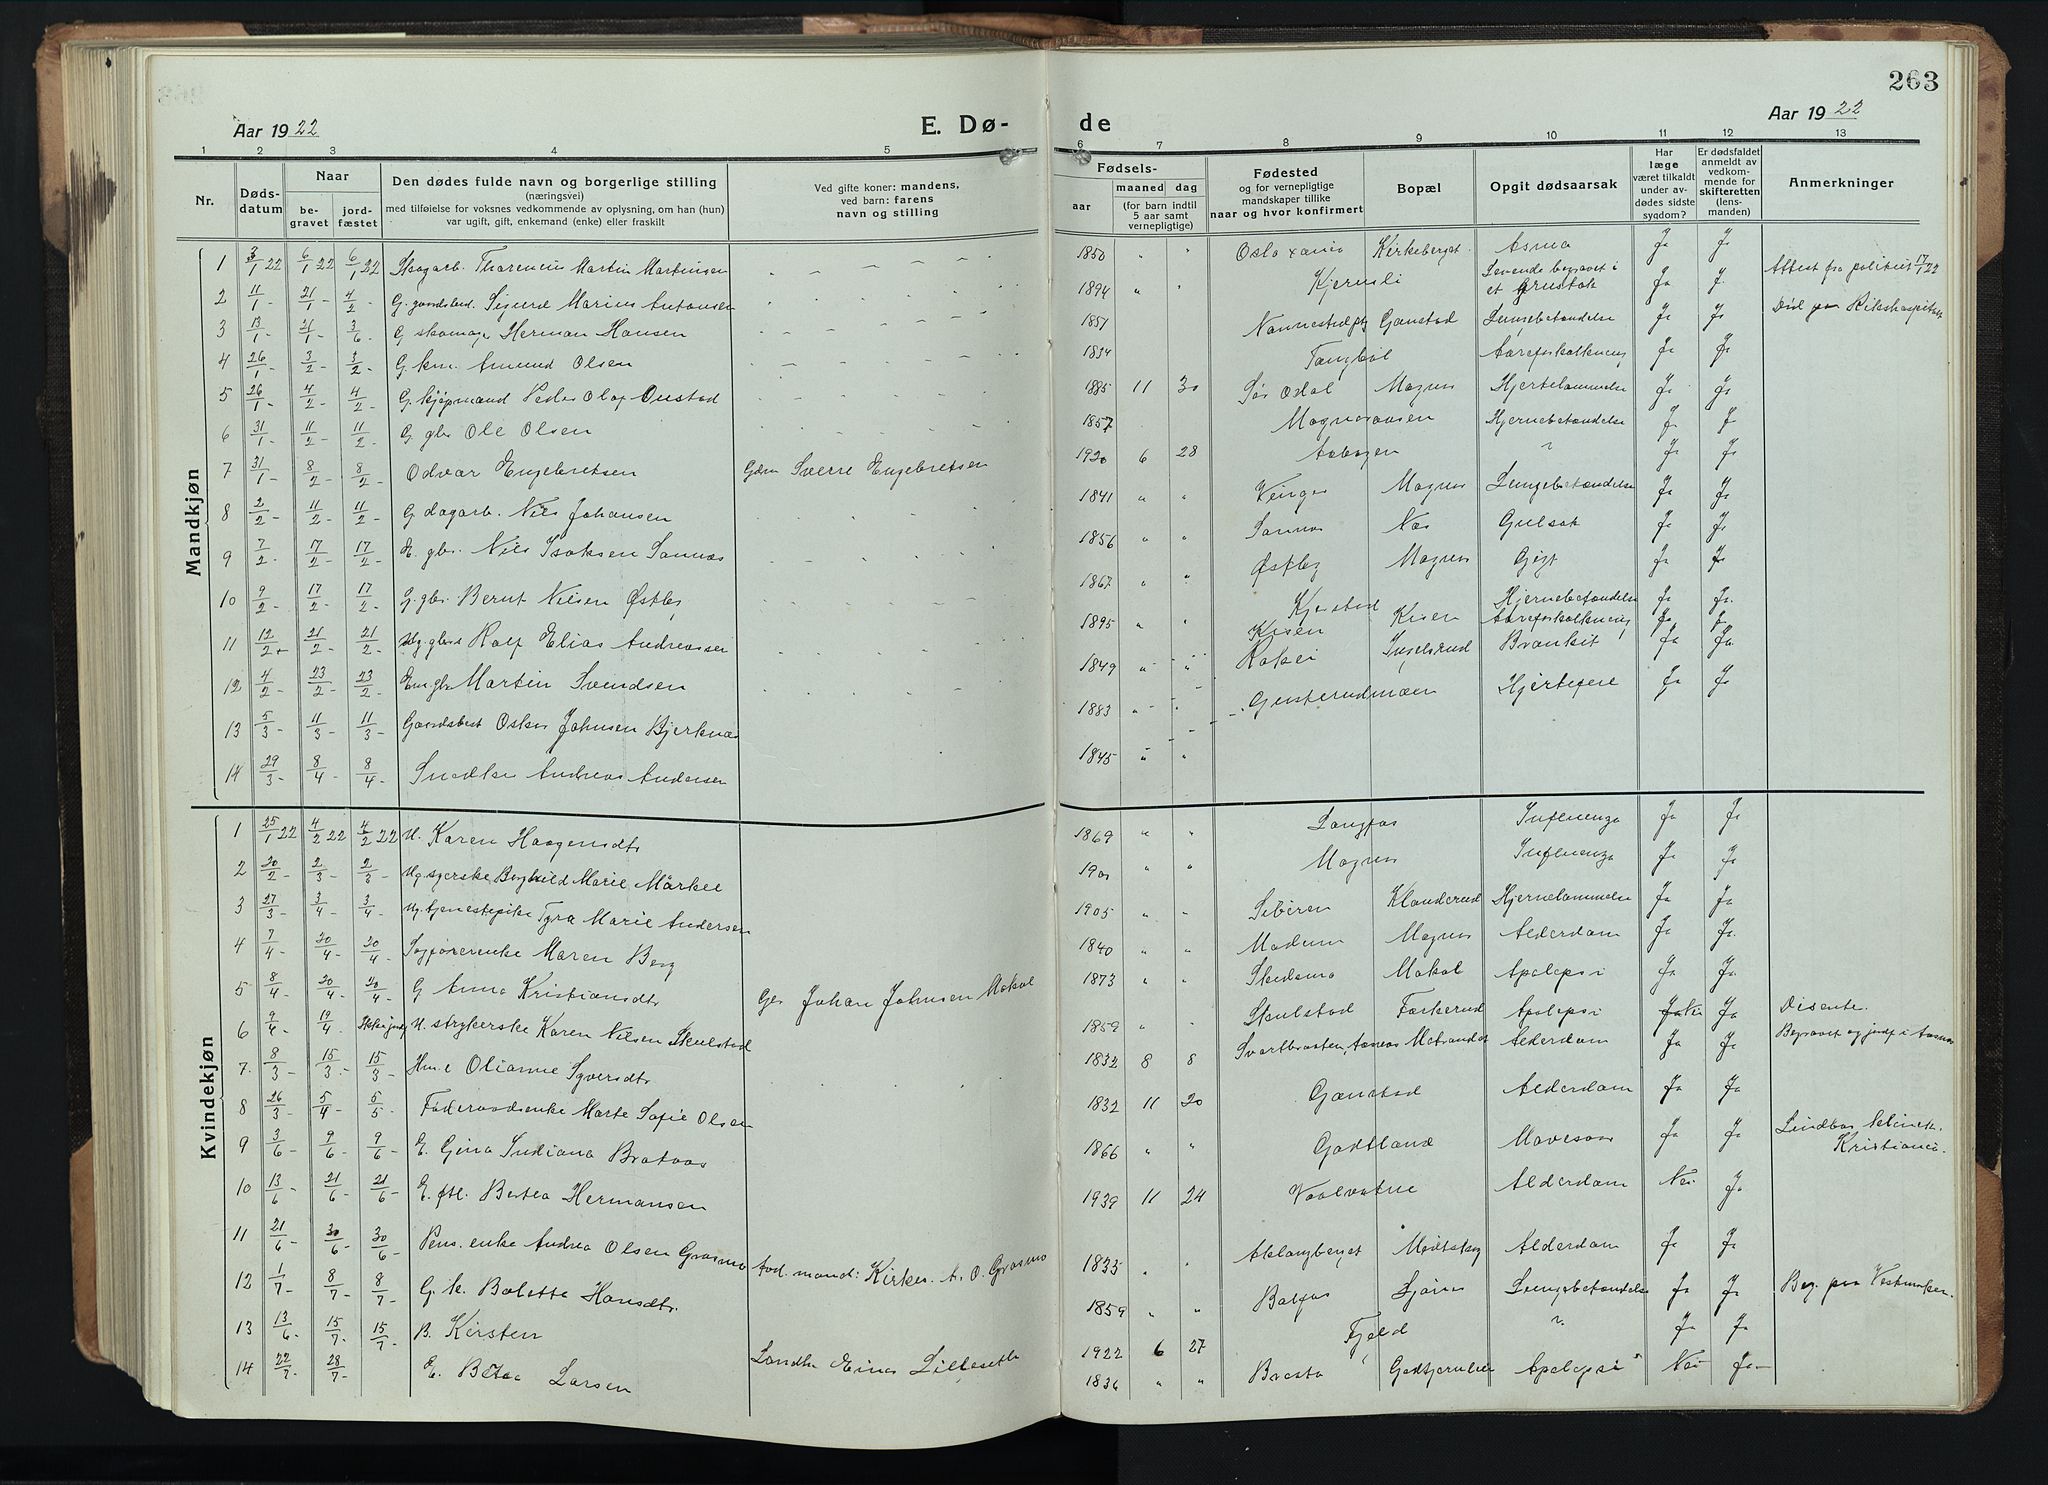 263
Aar 1922
E. Dø-
de
Aar 1922
1 2 3 4 5 6 7 8 9 10 11 12 13
Nr.
Døds-
datum
Naar
be-
gravet
jord-
fæstet
Den dødes fulde navn og borgerlige stilling
(næringsvei)
med tilføielse for voksnes vedkommende av oplysning, om han (hun)
var ugift, gift, enkemand (enke) eller fraskilt
Ved gifte koner: mandens,
ved barn: farens
navn og stilling
Fødsels-
aar
maaned dag
(for barn indtil
5 aar samt
vernepligtige)
Fødested
og for vernepligtige
mandskaper tillike
naar og hvor konfirmert
Bopæl
Opgit dødsaarsak
Har
læge
været tilkaldt
under av-
dødes sidste
sygdom?
Er dødsfaldet
anmeldt av
vedkom-
mende for
skifteretten
(lens-
manden)
Anmerkninger
Mandkjøn
1 3/1 22 6/1 22 6/1 22 Skogarb. Thorenius Martin Martinsen 1850 " " Kirkeberget Asma Ja Ja Attest fra politiet 17/1 22
2 11/1 - 21/1 - 4/2 - G. gaardsbrud. Sigurd Marius Antonsen 1894 " " Kjernsli Levende begravet i et grustak Ja J.
3 13/1 - 21/1 - 3/6 - G skomag. Herman Hansen 1851 Gaustad Lungebetændelse Ja Ja Død paa Rikshospitalet
4 26/1 - 3/2 - 3/2 - G. km. Amund Olsen 1834 Tangbøl Aareforkalkning Ja Ja
5 26/1 - 4/2 - 4/2 - G. kjøpmand Peder Olaf Oustad 1885 11 30 Sør Odal Magnor Hjertelammelse Ja Ja
6 31/1 - 11/2 - 11/2 - G gbr Ole Olsen 1857 Magnoraasen Hjernebetændelse Ja J
7 31/1 - 8/2 - 8/2 - Odvar Engebretsen Sverre Engebretsen 1920 6 28 Aabogen " Ja Ja
8 2/2 - 11/2 - 11/2 - G dagarb. Nils Johansen 1841 " " Vinger Magnor Lungebetændelse Ja Ja
9 7/2 - 17/2 - 17/2 - E. gbr. Nils Isaksen Sannæs 1856 " " Sannæs Næs Gulsot Ja Ja
10 9/2 - 17/2 - 17/2 - G. gbr. Bernt Nilsen Østby 1867 " " Østby Magnor Gigt Ja Ja
11 12/2 - 21/2 - 21/2 - Ug. gbrs Rolf Elias Andreassen 1895 " " Kjerstad Hjernebetændelse Ja Ja.
12 4/2 - 23/2 - 23/2 - Em gbr Martin Svendsen 1849 " " Kisen Kisen Aareforkalkning Ja J.
13 5/3 - 11/3 - 11/3 - Gaardsbest Oskar Johnsen Bjerknæs 1883 " Ingelsrud Bronkit Ja Ja
14 29/3 - 8/4 - 8/4 - Snedker Andreas Andersen 1845 " " Gusterudmoen Hjertefeil Ja Ja
Kvindekjøn
1 25/1 22 4/2 22 4/2 22 U. Karen Haagensdtr 1869 " " Langfos Influenza Ja Ja
2 20/2 - 2/3 - 2/3 - Ug. syerske Borghild Marie Mårkee " " Magnor Influenza Ja Ja
3 27/3 - 3/4 - 3/4 - Ug. tjenestepike Tyra Marie Andersen 1905 " " Sibiren Klanderud Hjernelammelse Ja Ja
4 7/4 - 20/4 - 20/4 - Sagførerenke Maren Berg 1840 " " Modum Magnor Alderdom Ja Ja.
5 8/4 - 20/4 - 20/4 - G Anna Kristiansdtr Gbr Johan Johnsen Mokol 1873 " " Skedsmo Mokol Apoleksi Ja Ja
6 9/4 - 19/4 - Ikke jordf. U. strykerske Karen Nilsen Skulstad 1859 " " Skulstad Faskerud Apoleksi Nei Ja Disente.
7. 8/3 - 15/3 - 15/3 - Hm.e Oliane Syversdtr 1832 8 8 Svartbraaten, Aasnes Alderdom Ja Ja Begravet og jordf i Aasnes
8 26/3 - 5/4 - 5/5 - Føderaadsenke Marte Sofie Olsen 1832 11 20 Gaustad Alderdom Ja Ja
9 3/6 - 9/6 - 9/6 - E. Gina Indiana Brataas 1866 " " Godtland Mavesaar Ja Ja Kristiania.
10 13/6 - 21/6 - 21/6 - E. ftl. Bertea Hermansen 1939 11 24 Alderdom Nei Ja
11 21/6 - 30/6 - 30/6 - Pens. enke Andrea Olsen Grasmo Avd. mand: Kirkes. A. O. Grasmo 1835 " " Alderdom Ja Ja
12 1/7 - 8/7 - 8/7 - G. k. Bolette Hansdtr. 1859 " " Lungebetændelse Ja Ja Beg. paa Vestmarken.
13 13/6 - 15/7 - 15/7 - B. Kirsten Landh. Einar Lilleseth 1922 6 27 Fjeld " Ja Ja
14 22/7 - 28/7 - E. Larsen 1836 " " Apoleksi Nei Ja